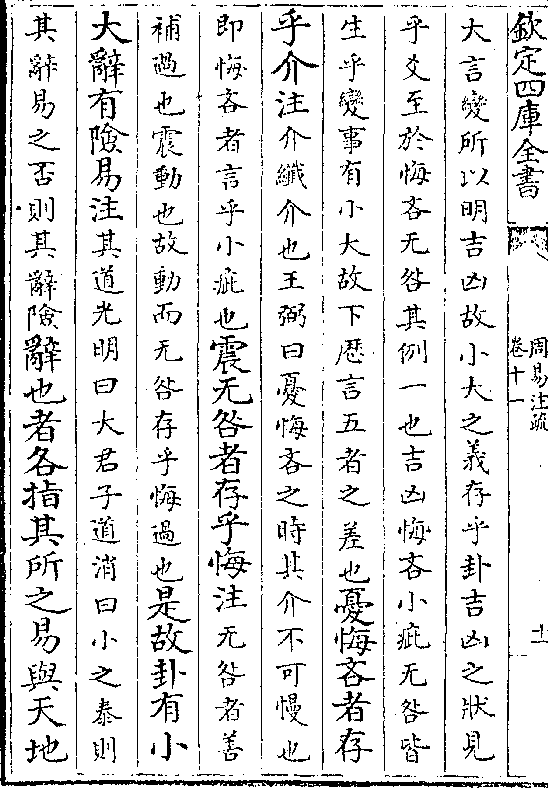 欽定四庫全書
周易注疏
卷十一
十一
大言變所以明吉凶故小大之義存乎卦吉凶之狀見
乎爻至於悔吝无咎其例一也吉凶悔吝小疵无咎皆
生乎變事有小大故下歷言五者之差也憂悔吝者存
乎介注介纖介也王弼曰憂悔吝之時其介不可慢也
即悔吝者言乎小疵也震无咎者存乎悔注无咎者善
補過也震動也故動而无咎存乎悔過也是故卦有小
大辭有險易注其道光明曰大君子道消曰小之泰則
其辭易之否則其辭險辭也者各指其所之易與天地